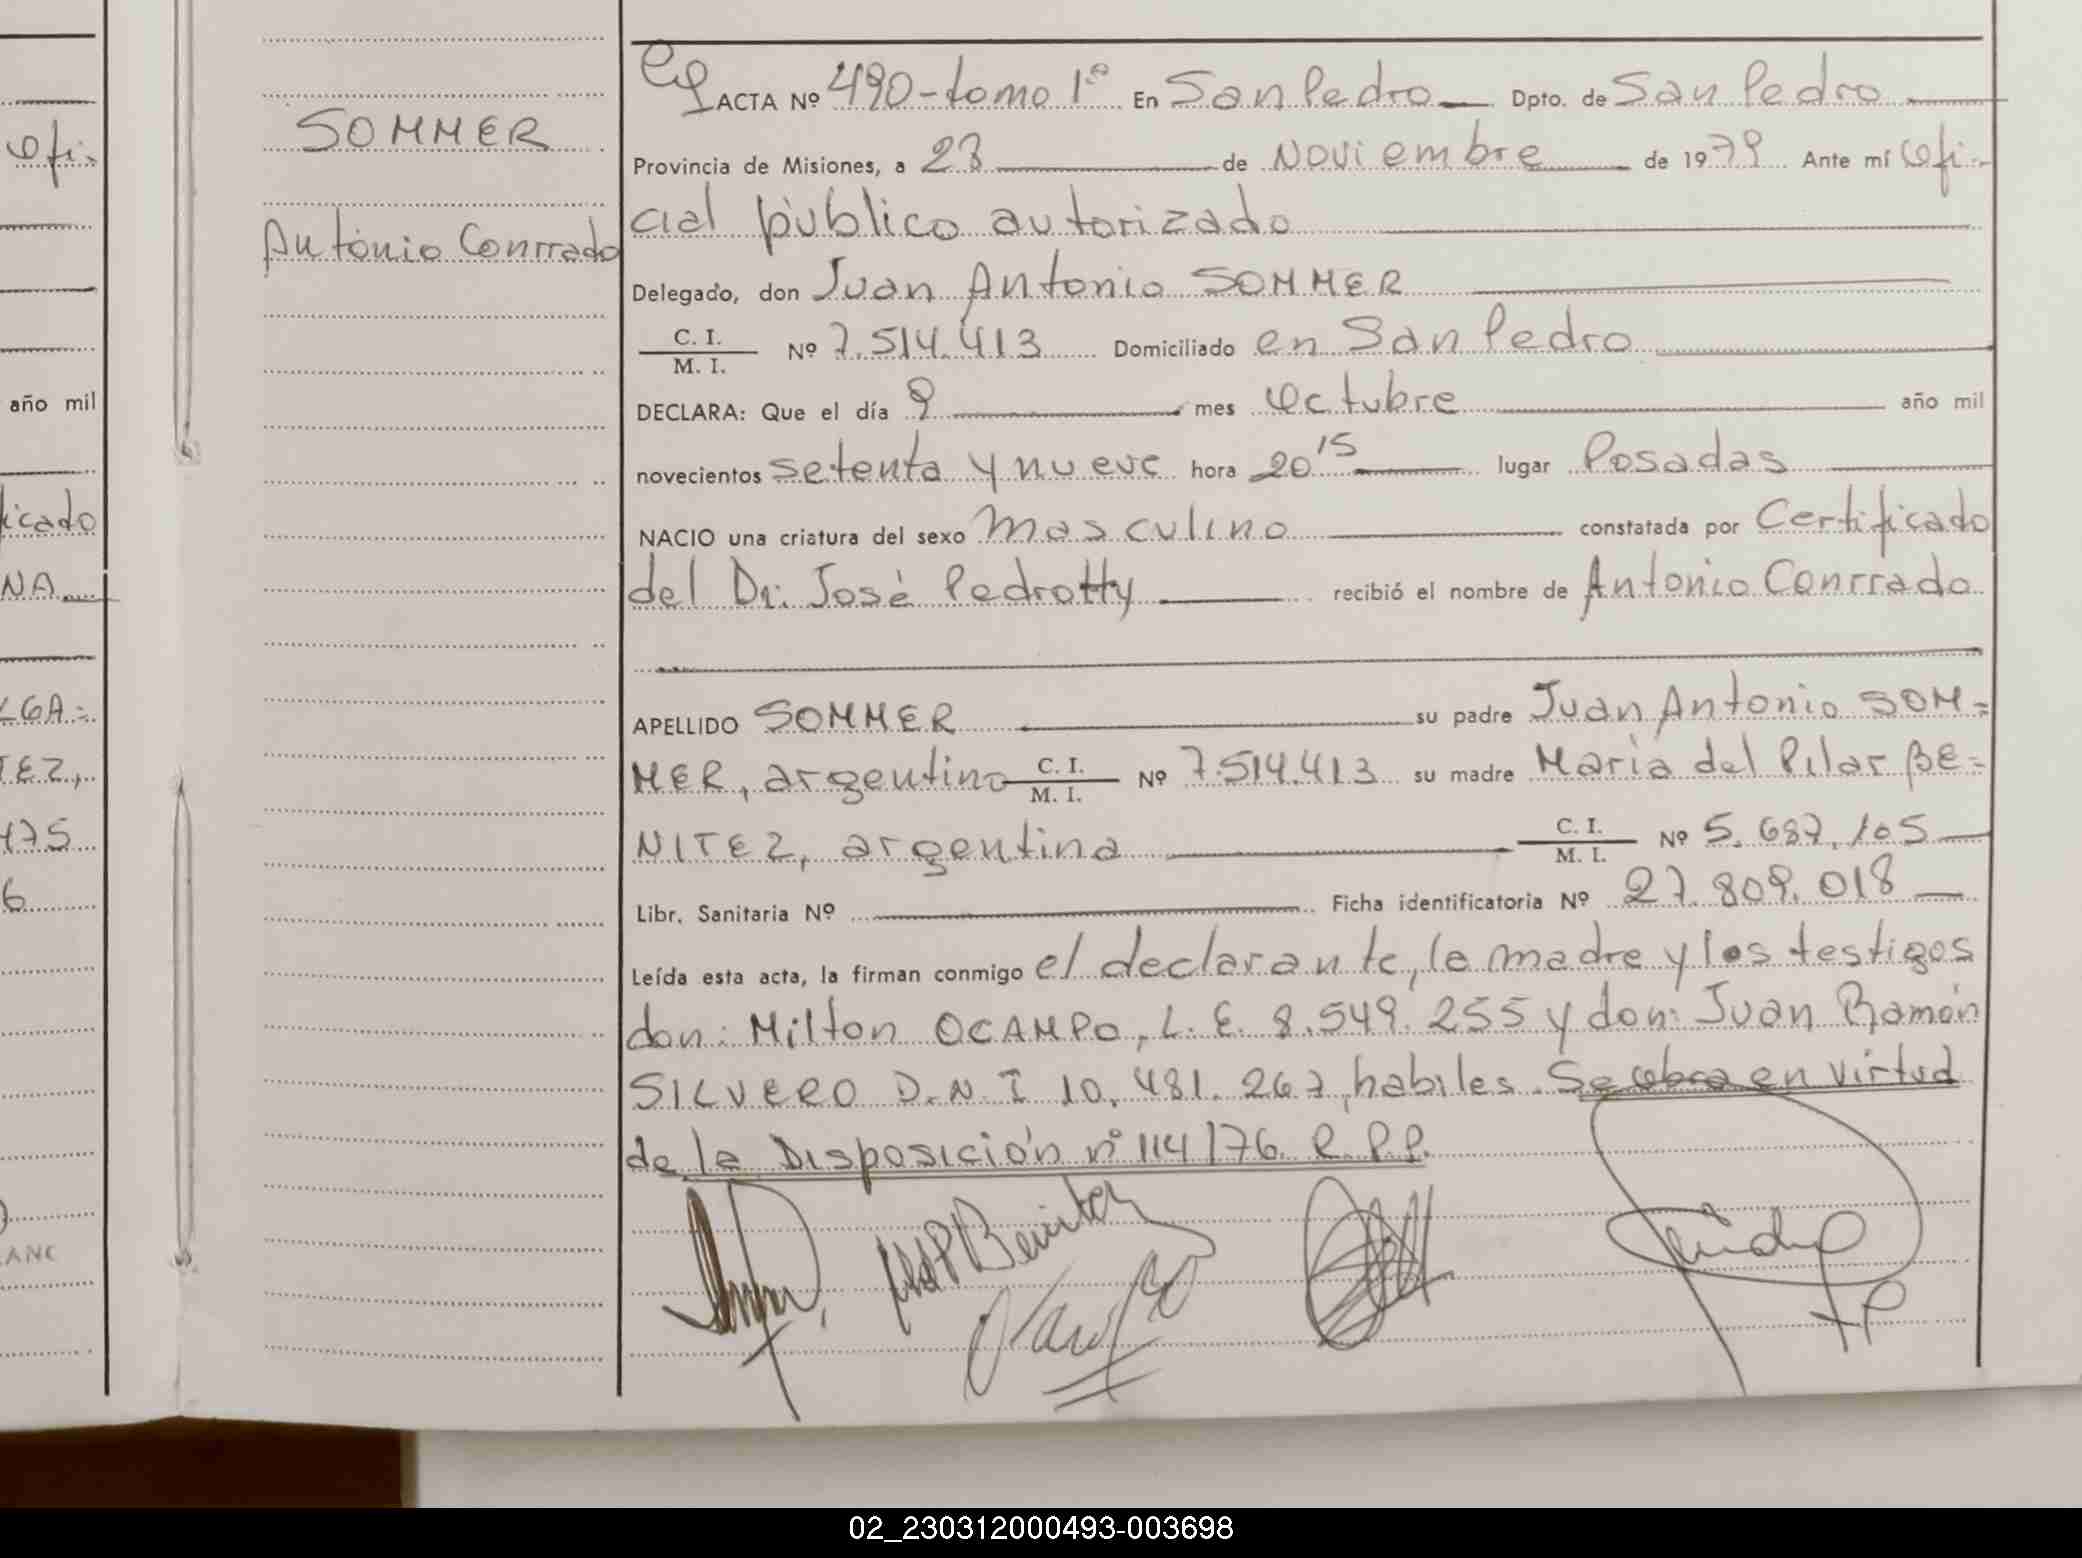 ofi-
año mil
icado
NA
LGA=
TEZ,
475
6
ANC
SOMMER
Antonio Conrrado
ACTA Nº 490-tomo 1º En San Pedro Dpto. de San Pedro
Provincia de Misiones, a 23 de Noviembre de 1979 Ante mí Ofi-
cial público autorizado
Delegado, don Juan Antonio SOMMER
C. I. / M. I. Nº 7.514.413 Domiciliado en San Pedro
DECLARA: Que el día 9 mes Octubre año mil
novecientos setenta y nueve hora 20 15 lugar Posadas
NACIO una criatura del sexo Masculino constatada por Certificado
del Dr. José Pedrotty recibió el nombre de Antonio Conrrado
APELLIDO SOMMER su padre Juan Antonio SOM=
MER, argentino C. I. / M. I. Nº 7.514.413 su madre María del Pilar BE=
NITEZ, argentina C. I. / M. I. Nº 5.687.105
Libr. Sanitaria Nº Ficha identificatoria Nº 27.809.018
Leída esta acta, la firman conmigo el declarante, la madre y los testigos
don: Milton OCAMPO, L. E. 8.549.255 y don: Juan Ramón
SILVERO D.N.I 10.481.267, habiles. Se obra en virtud
de la Disposición nº 114/76. R.P.P.
MdP Benitez
02_230312000493-003698